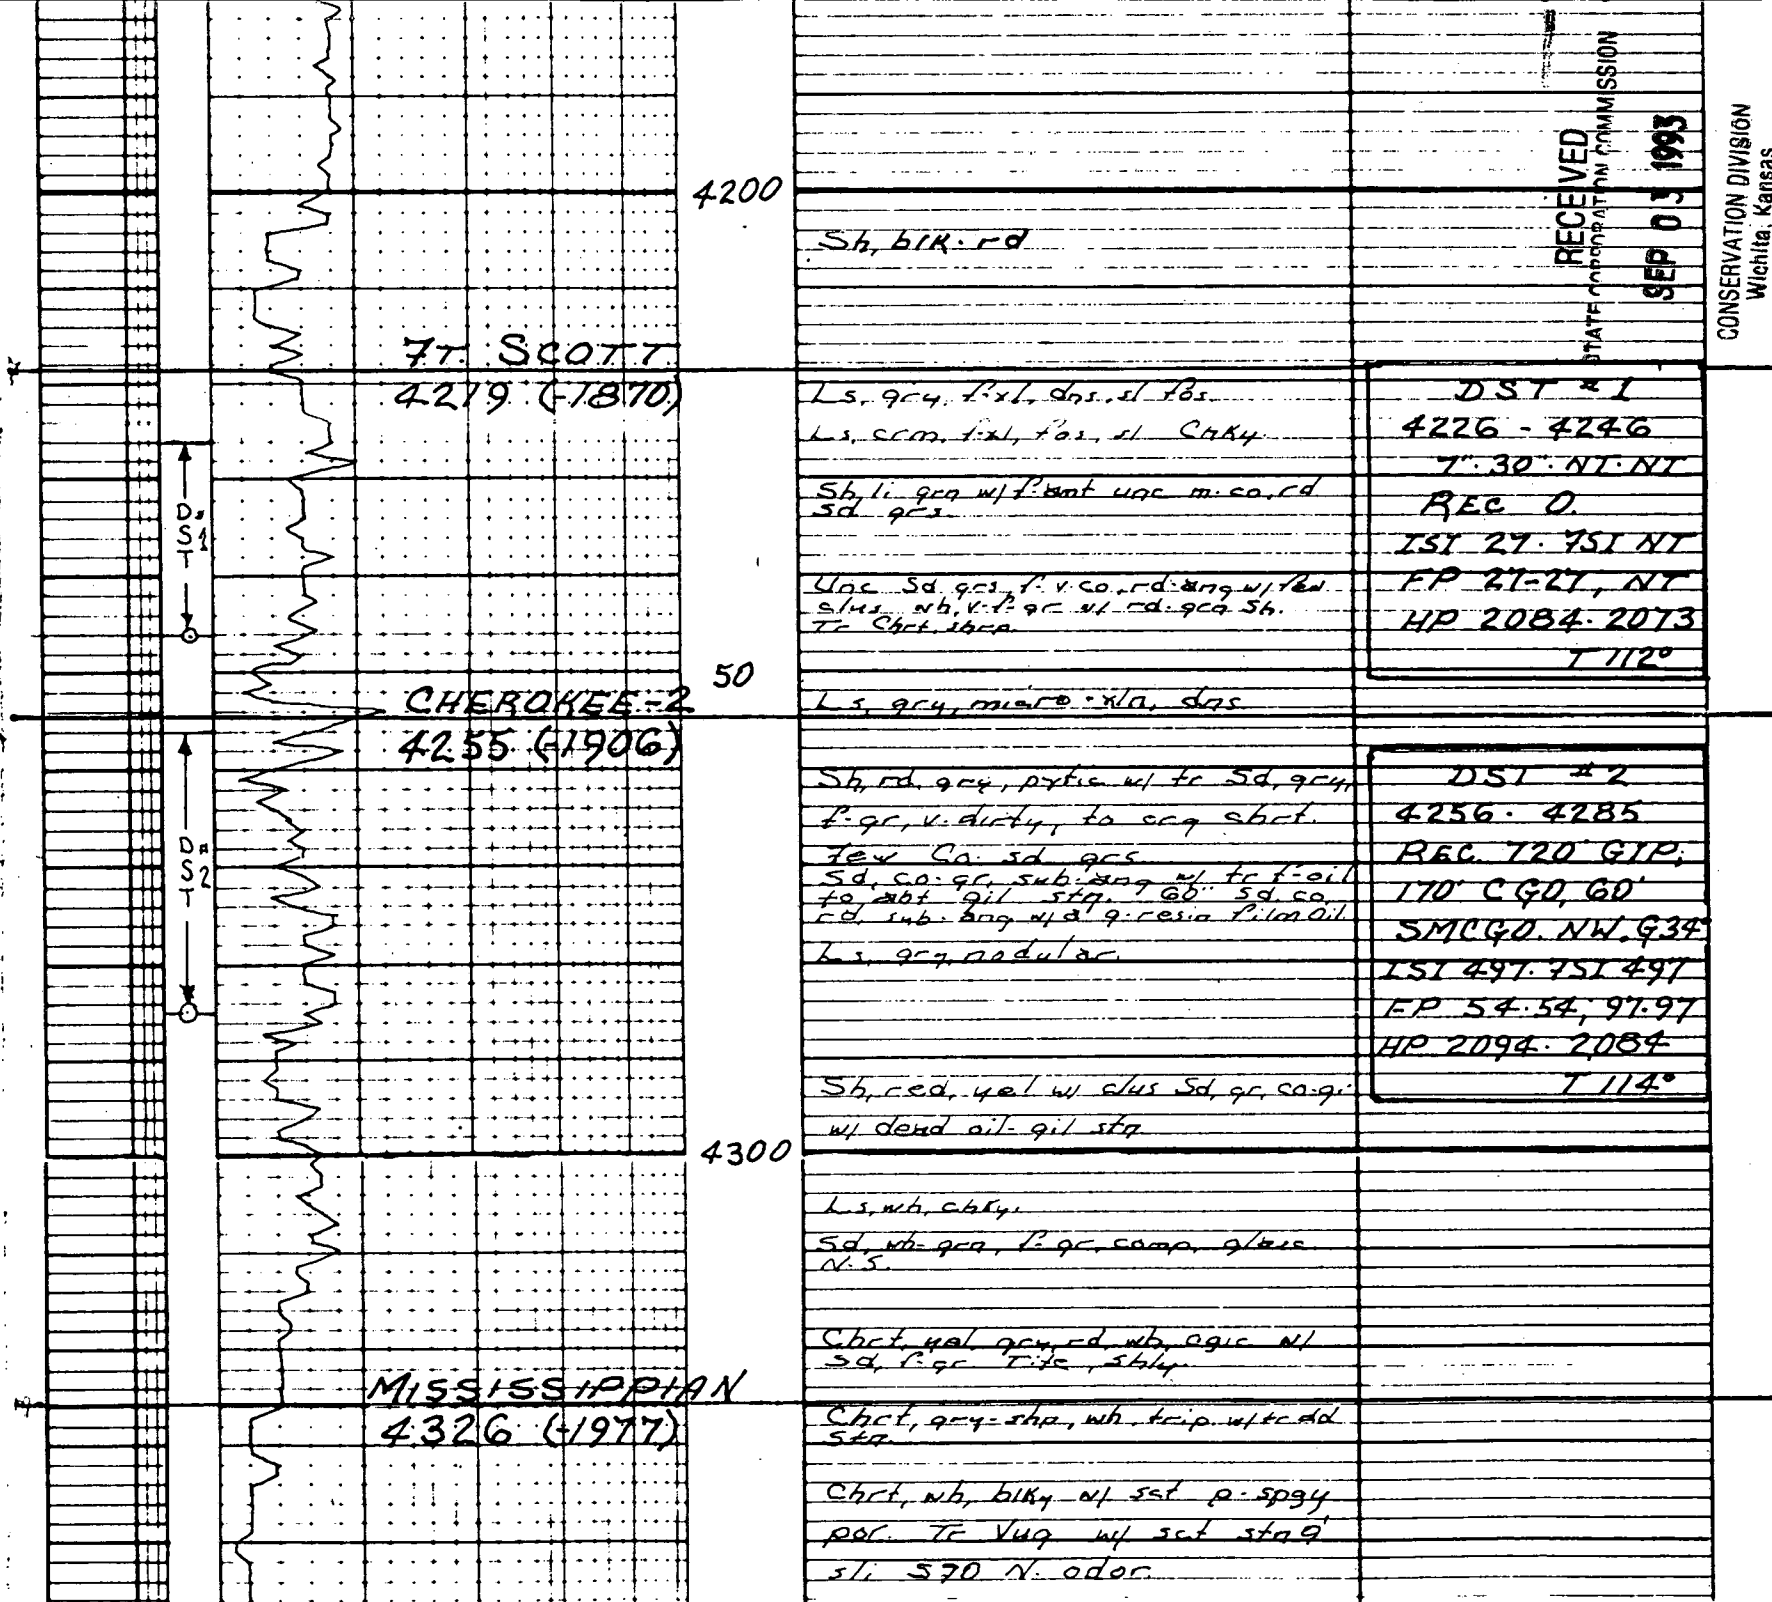 4200
Sh, blk-rd
FT. SCOTT
4219 (-1870)
Ls, gry, f-xl, dns, sl fos.
Ls, crm, f-xl, fos, sl Chky
Sh, li grn w/ f-amt unc m-co, rd
Sd grs.
Unc Sd grs, f-v co, rd-ang w/ few
clus wh, v-f-gr w/ rd-grn Sh.
Tr Chrt, shrp.
50
CHEROKEE-2
4255 (-1906)
Ls, gry, micro-xln, dns
Sh, rd, gry, pytic w/ tr Sd, gry,
f-gr, v-dirty, to crg chrt.
Few Co. sd grs
Sd, co-gr, sub-ang w/ tr f-oil
to abt oil stn. 60" Sd, co,
rd, sub-ang w/ a g-resin film oil
Ls, gry, nodular.
Sh, red, yel w/ clus Sd, gr, co-g.
w/ dead oil-oil stn
4300
Ls, wh, chky.
Sd, wh-grn, f-gr, comp, glauc
N.S.
Chrt, yel, gry, rd, wh, ogic w/
Sd, f-gr Tite, shly.
MISSISSIPPIAN
4326 (-1977)
Chrt, gry-shp, wh, trip w/ tr dd
Stn.
Chrt, wh, blky w/ sct p-spgy
por. Tr Vug w/ sct stn g
sli SFO N. odor.
D#
S1
T
D#
S2
T
DST #1
4226 - 4246
7"-30"-NT-NT
REC 0.
ISI 27-FSI NT
FP 27-27, NT
HP 2084-2073
T 112°
DST #2
4256-4285
REC. 720' GIP,
170' CGO, 60'
SMCGO. NW. G34°
ISI 497-FSI 497
FP 54-54, 97-97
HP 2094-2084
T 114°
RECEIVED
STATE CORPORATION COMMISSION
SEP 03 1993
CONSERVATION DIVISION
Wichita, Kansas